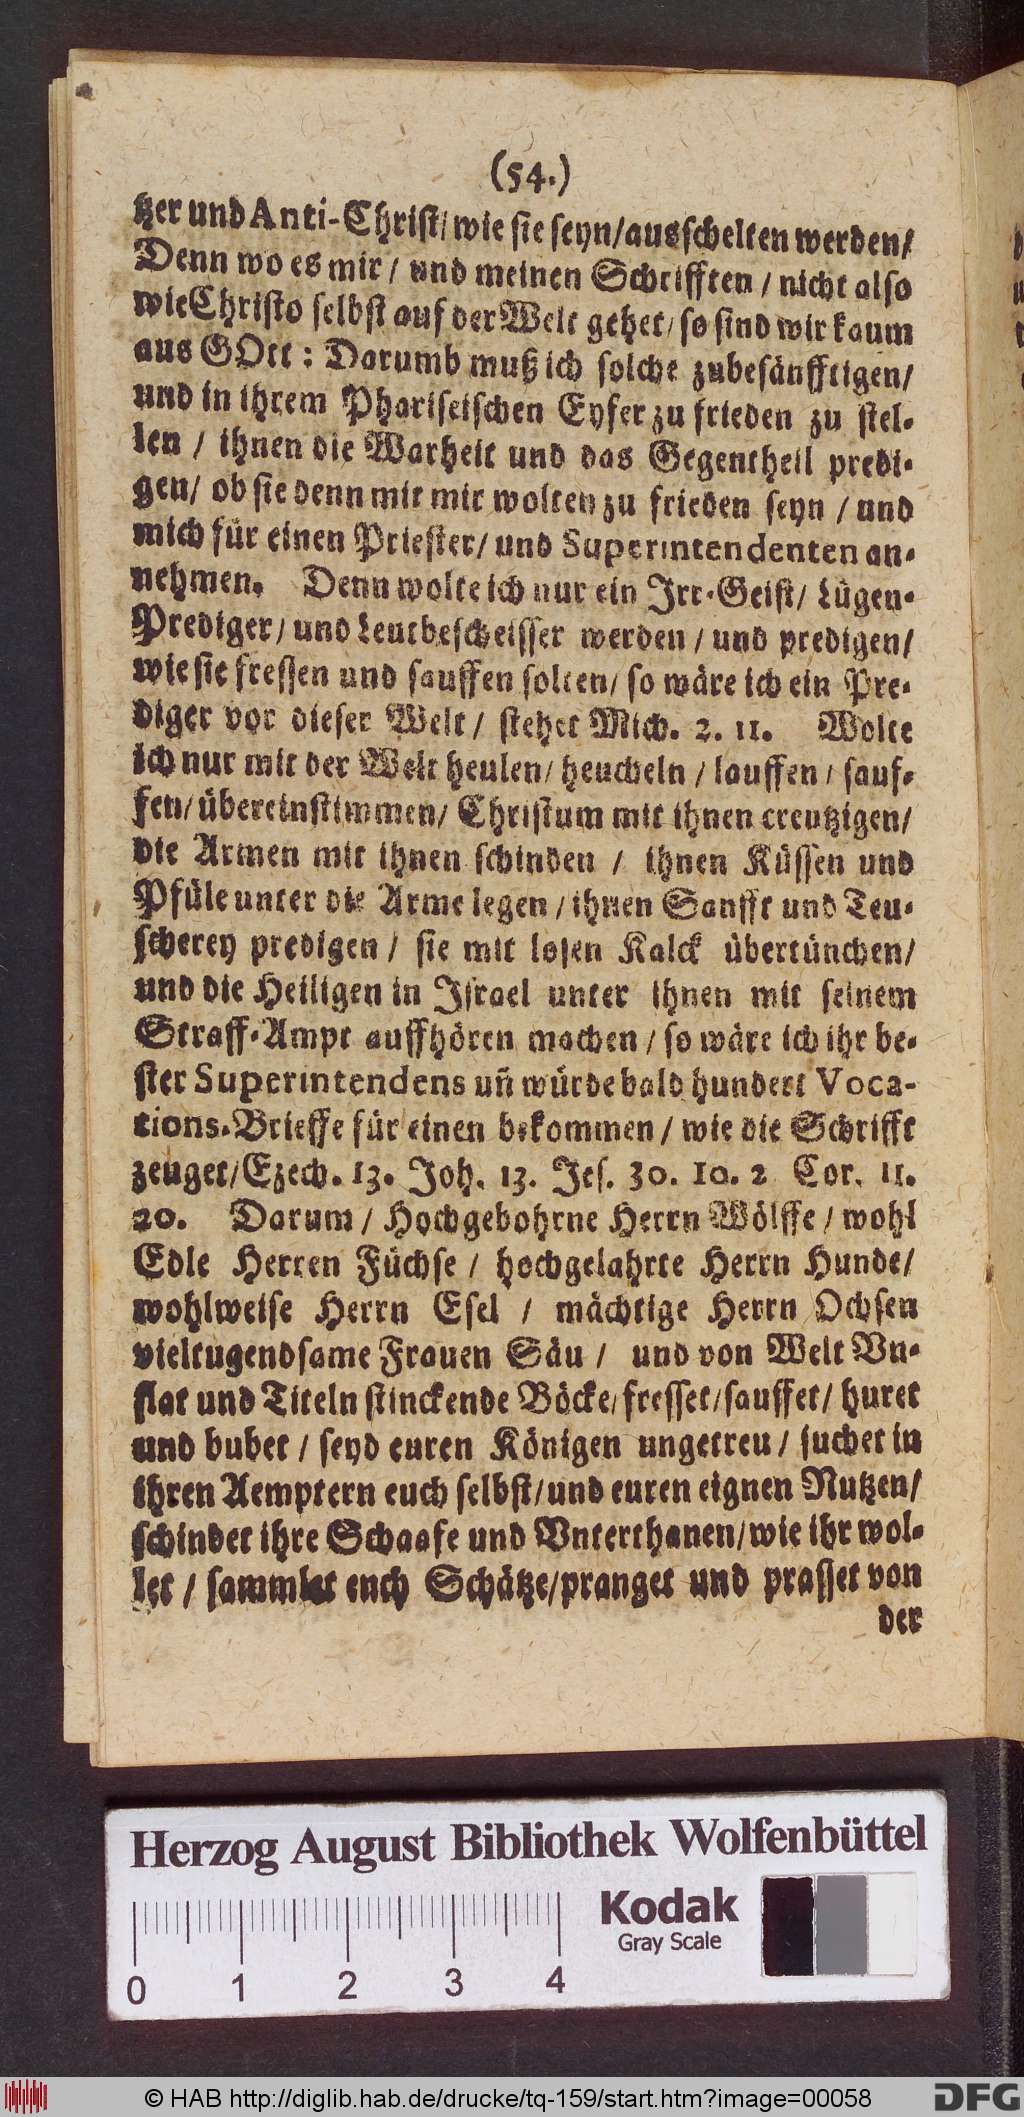 (54.)
tzer und Anti-Christ/ wie sie seyn/ ausschelten werden/
Denn wo es mir / und meinen Schrifften / nicht also
wie Christo selbst auf der Welt gehet/ so sind wir kaum
aus GOtt : Darumb muß ich solche zubesänfftigen/
und in ihrem Phariseischen Eyfer zu frieden zu stel-
len / ihnen die Warheit und das Gegentheil predi-
gen/ ob sie denn mit mir wolten zu frieden seyn / und
mich für einen Priester/ und Superintendenten an-
nehmen. Denn wolte ich nur ein Irr-Geist/ Lügen-
Prediger/ und Leutbescheisser werden / und predigen/
wie sie fressen und sauffen solten/ so wäre ich ein Pre-
diger vor dieser Welt / stehet Mich. 2. 11. Wolte
ich nur mit der Welt heulen/ heucheln / lauffen / sauf-
fen/ übereinstimmen/ Christum mit ihnen creutzigen/
die Armen mit ihnen schinden / ihnen Küssen und
Pfüle unter die Arme legen / ihnen Sanfft und Teu-
scherey predigen / sie mit losen Kalck übertünchen/
und die Heiligen in Israel unter ihnen mit seinem
Straff-Ampt auffhören machen / so wäre ich ihr be-
ster Superintendens uñ würde bald hundert Voca-
tions-Brieffe für einen bekommen / wie die Schrifft
zeuget/ Ezech. 13. Joh. 13. Jes. 30. 10. 2 Cor. 11.
20. Darum / Hochgebohrne Herrn Wölffe / wohl
Edle Herren Füchse / hochgelahrte Herrn Hunde/
wohlweise Herrn Esel / mächtige Herrn Ochsen
vieltugendsame Frauen Säu / und von Welt Vn-
flat und Titeln stinckende Böcke/ fresset/ sauffet/ huret
und bubet / seyd euren Königen ungetreu / suchet in
ihren Aemptern euch selbst/ und euren eignen Nutzen/
schindet ihre Schaafe und Vnterthanen/ wie ihr wol-
let / sammlet euch Schätze/ pranget und prasset von
der
Herzog August Bibliothek Wolfenbüttel
Kodak
Gray Scale
0 1 2 3 4
© HAB http://diglib.hab.de/drucke/tq-159/start.htm?image=00058
DFG